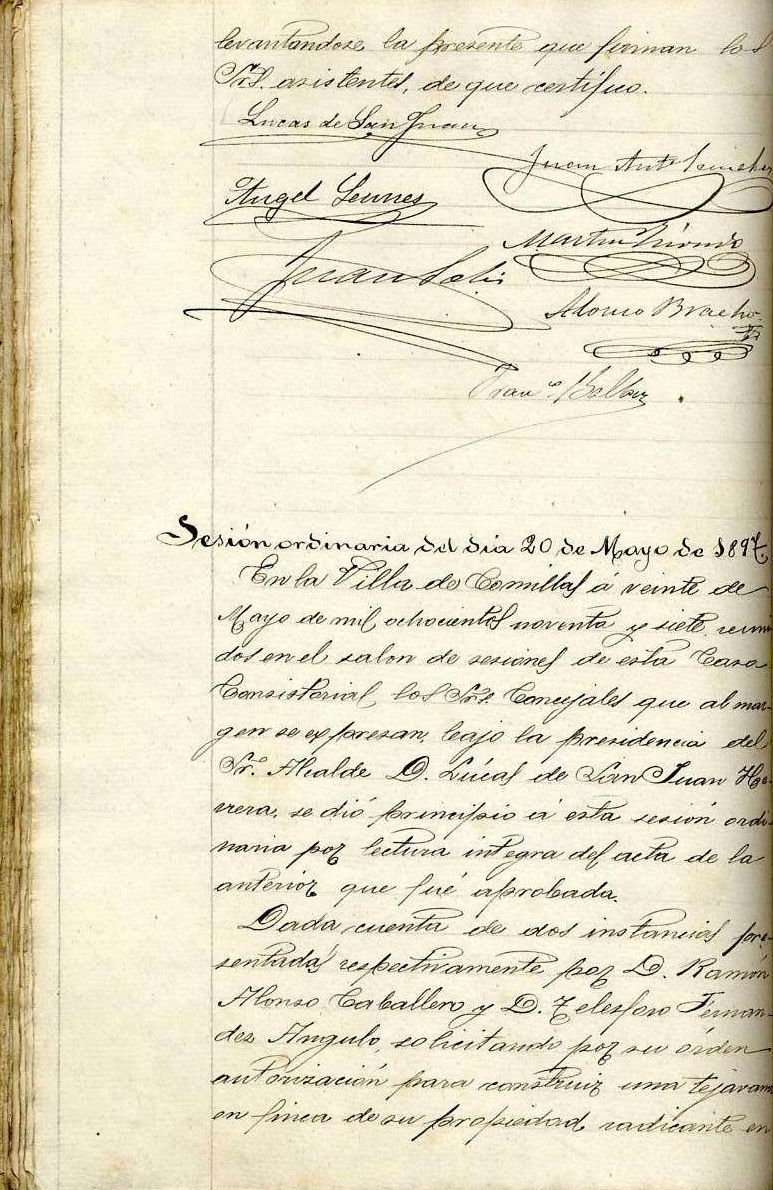 levantandose la presente que firman los
Srs. asistentes, de que certifico.
Lucas de San Juan
Juan Ant Sanchez
Angel
Martin
Juan Solis
Alonso Bracho
Franco
Sesión ordinaria del dia 20 de Mayo de 1897.
En la Villa de Comillas á veinte de
Mayo de mil ochocientos noventa y siete, reuni
dos en el salon de sesiones de esta Casa
Consistorial, los Srs. Concejales que al mar-
gen se expresan, bajo la presidencia del
Sr. Alcalde D. Lúcas de San Juan He-
rrera, se dió principio á esta sesión ordi-
naria por lectura integra del acta de la
anterior que fué aprobada.
Dada cuenta de dos instancias pre-
sentadas respectivamente por D. Ramón
Alonso Caballero y D. Telesforo Fernan-
dez Angulo, solicitando por su órden
autorización para construir una tejavana
en finca de su propiedad, radicante en